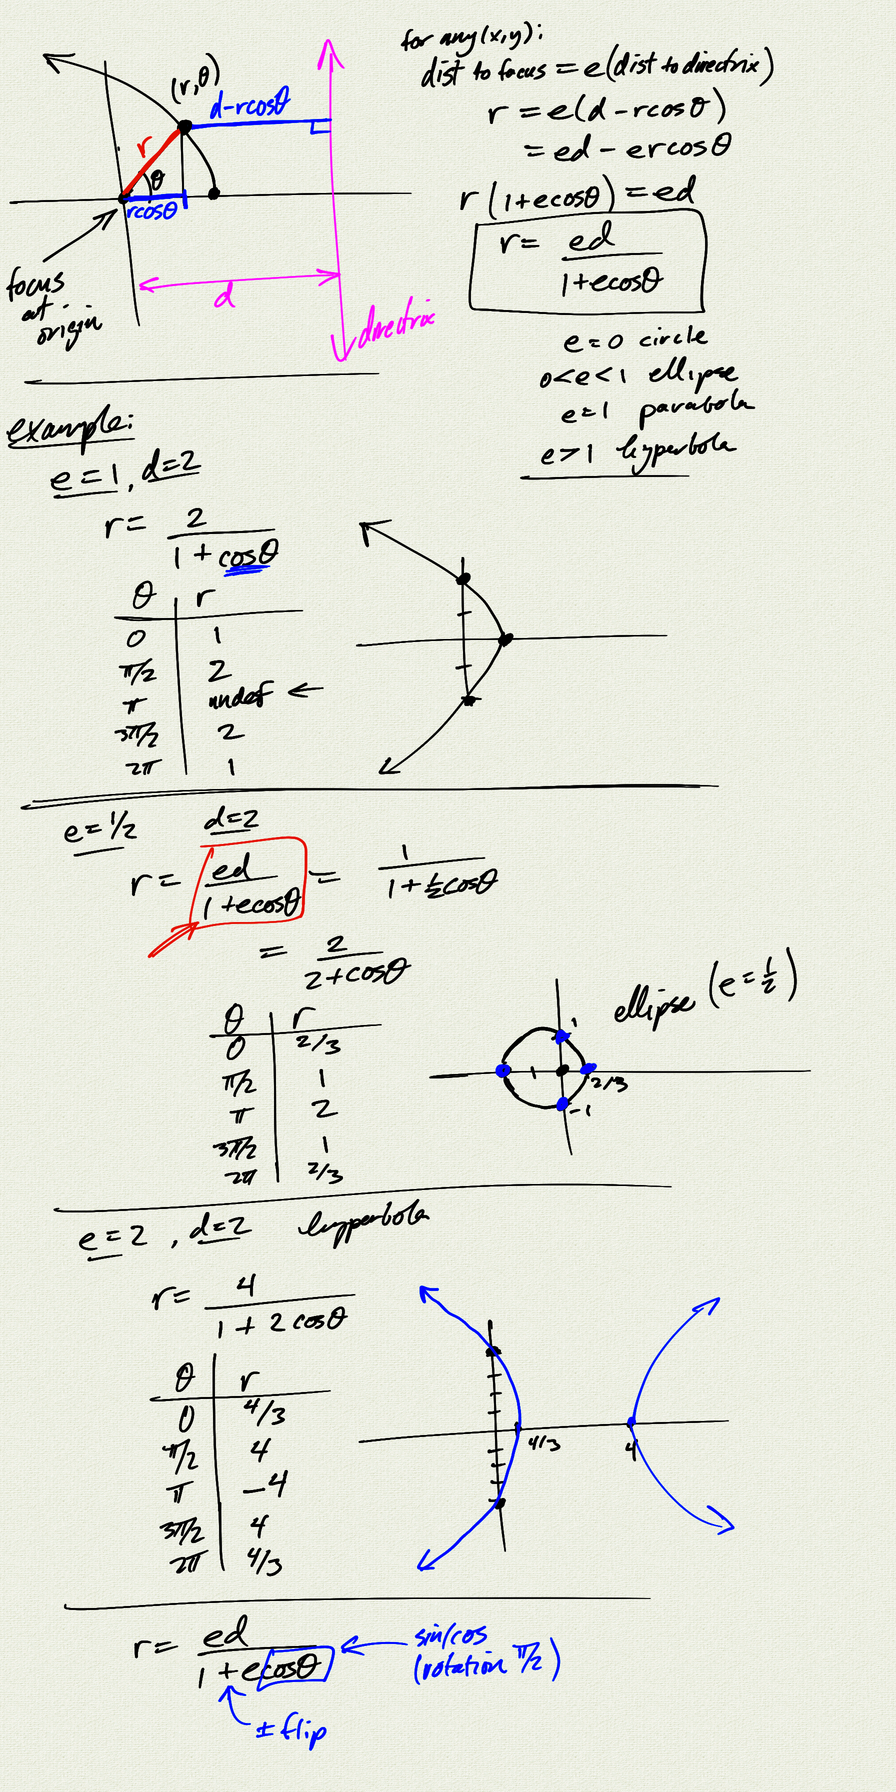 (r,θ)
d-rcosθ
r
θ
rcosθ
focus
at
origin
d
directrix
for any (x,y):
dist to focus = e(dist to directrix)
r = e(d-rcosθ)
= ed - ercosθ
r(1+ecosθ) = ed
r = ed/(1+ecosθ)
e=0 circle
0<e<1 ellipse
e=1 parabola
e>1 hyperbola
example:
e=1, d=2
r = 2/(1+cosθ)
θ | r
0 | 1
π/2 | 2
π | undef ←
3π/2 | 2
2π | 1
e=1/2 d=2
r = ed/(1+ecosθ) = 1/(1+½cosθ)
= 2/(2+cosθ)
θ | r
0 | 2/3
π/2 | 1
π | 2
3π/2 | 1
2π | 2/3
ellipse (e=½)
1
2/3
-1
e=2, d=2 hyperbola
r = 4/(1+2cosθ)
θ | r
0 | 4/3
π/2 | 4
π | -4
3π/2 | 4
2π | 4/3
4/3
4
r = ed/(1+ecosθ) ← sin/cos
(rotation π/2)
± flip